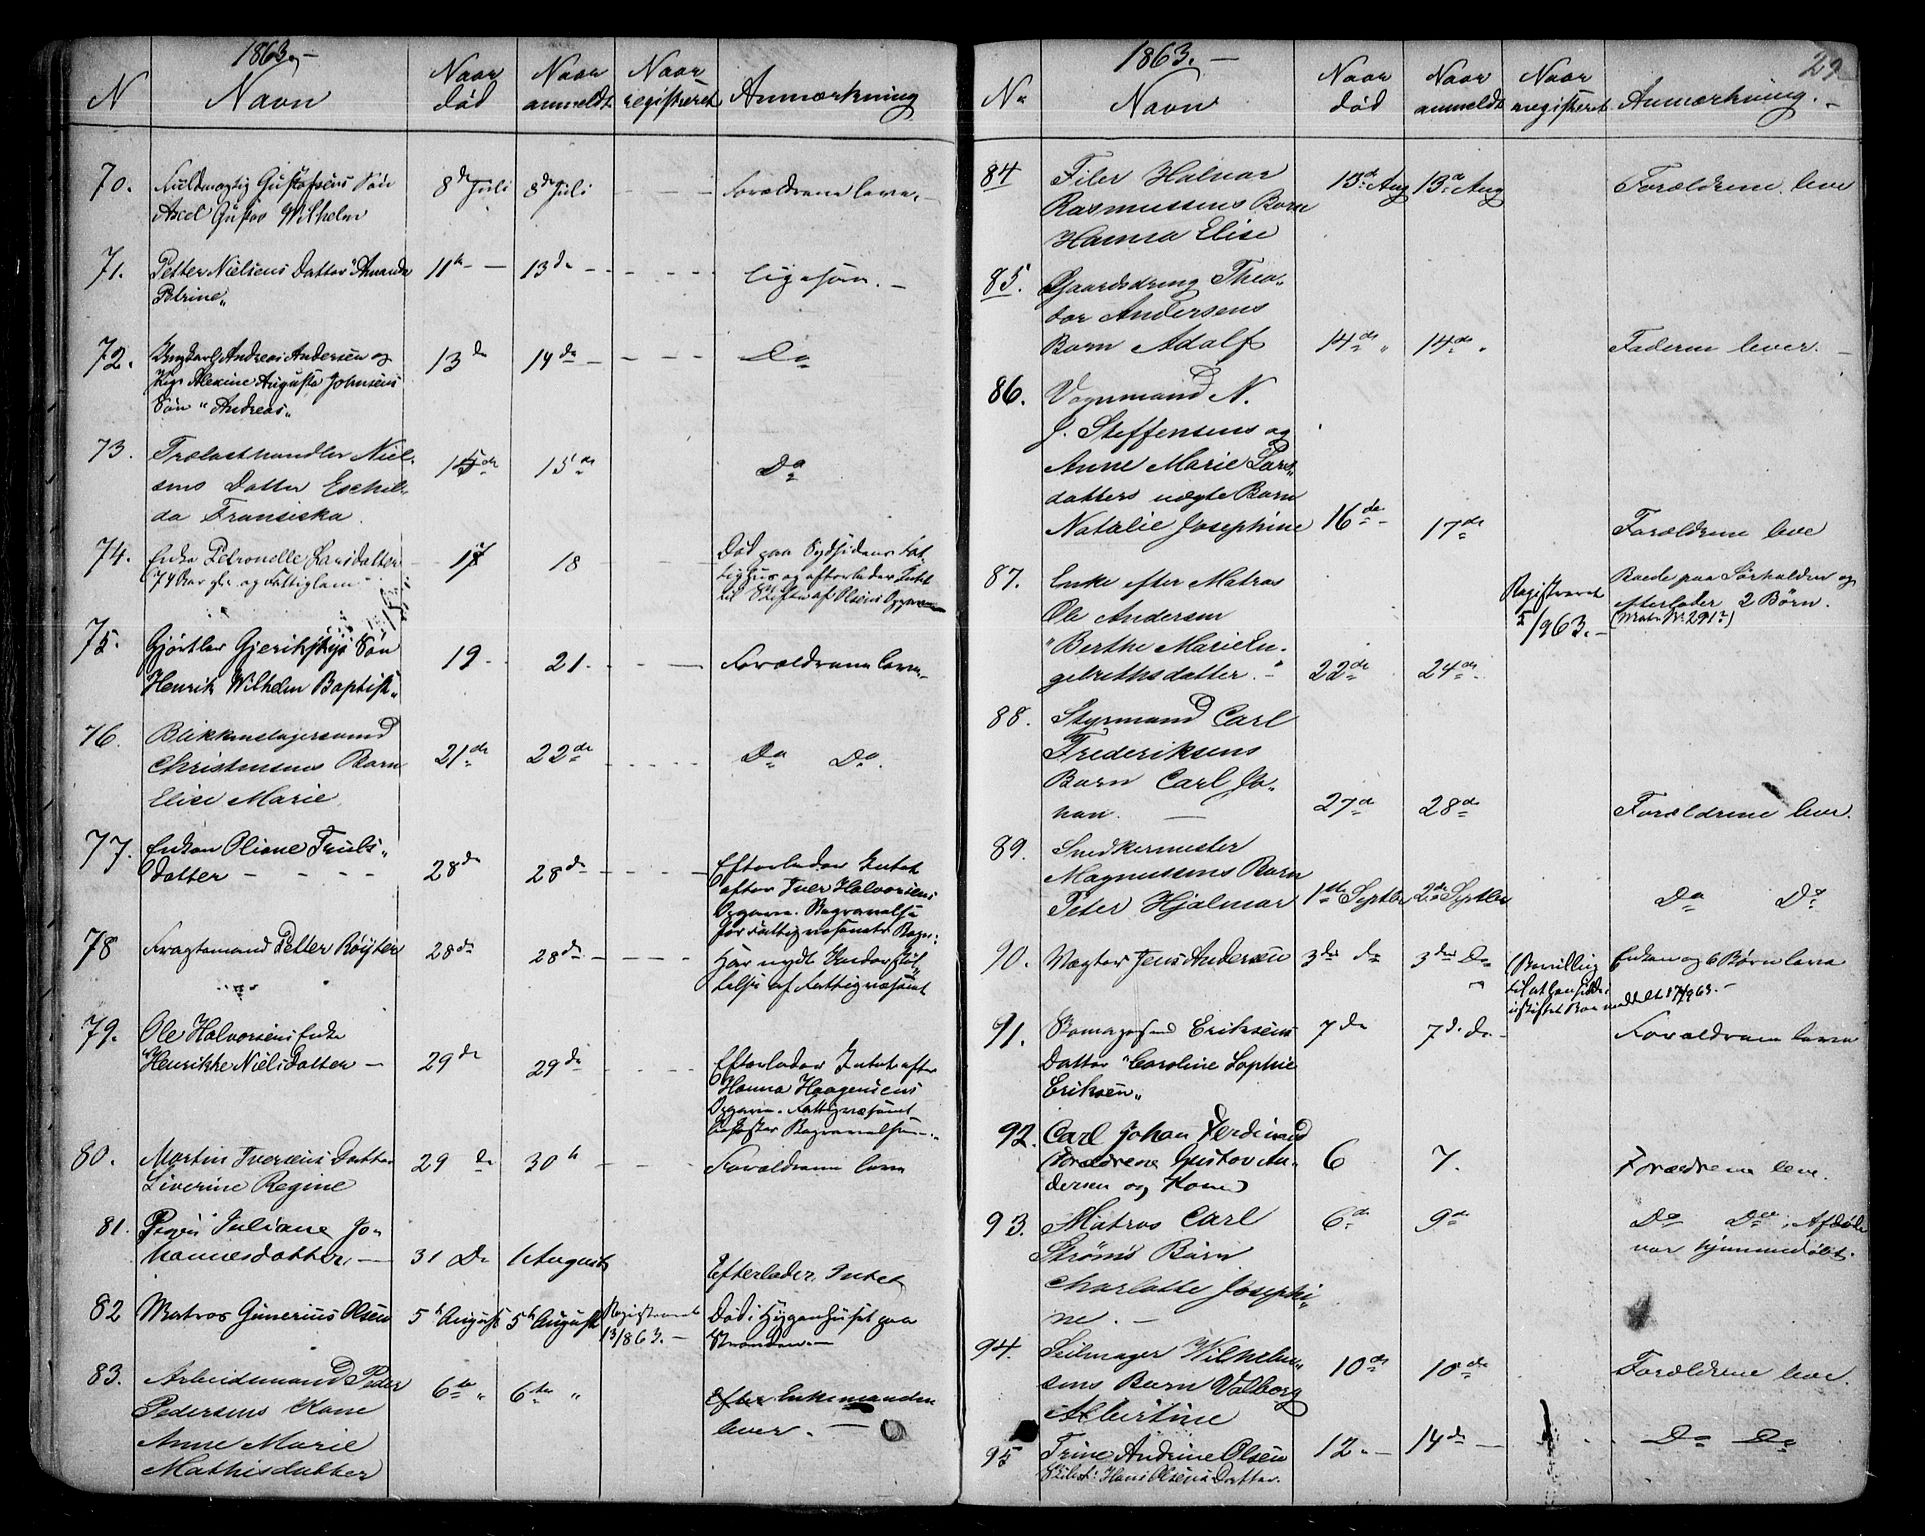 1863. –
N Navn Naar død Naar anmeldt Naar registreret Anmærkning
70. Fuldmægtig Gustafsens Søn 8de Juli 8de Juli Forældrene leve. –
Axel Gustav Wilhelm
71. Petter Nielsens Datter "Amanda 11te 13de Ligesaa. –
Petrine"
72. Ungkarl Andreas Andersen og 13de 14de Do
Pige Alexine Augusta Johnsens
Søn "Andreas"
73. Trælasthandler Niel- 15de 15de Do
sens Datter Eschil-
da Fransiska.
74. Enke Petronelle Larsdatter 17 18 Død paa Sydsidens Fat-
74 Aar gl. og Fattiglem tighus og efterlader Intet
til Skiften af Olsens Opgave
75. Gjørtler Gjerikskys Søn 19 21. Forældrene leve
Henrik Wilhelm Baptist"
76. Blikkenslagersvend 21de 22de Do Do.
Christensens Barn
Elise Marie
77. Enken Oliane Truls- 28de 28de Efterlader Intet
datter efter Iver Halvorsens
Opgave. Begravelse
for Fattigvæsenets Regn:
78 Fragtemand Petter Röyter 28de 28de Har nydt Understøt-
telse af Fattigvæsenet
79. Ole Halvorsens Enke
Henrikke Nielsdatter – 29de 29de Efterlader Intet efter
Hanna Haagensens
Opgave. Fattigvæsenet
bekoster Begravelsen
80. Martin Iversens Datter 29de 30te Forældrene leve
Liverine Regine
81. Pigen Juliane Jo-
hannesdatter. 31 Do 1 August Efterlader Intet
82 Matros Gunerius Olsen 5te August 5te August Registreret Død i Sygehuset paa
13/8 63. – Stranden –
83. Arbeidsmand Peder 6te " 6te " Efter Enkemanden
Pedersens Kone lever. –
Anne Marie
Mathisdatter
29
1863. –
No Navn Naar død Naar anmeldt Naar registreret Anmærkning. –
84 Filer Halvar 13de Aug 13de Aug Forældrene leve
Rasmussens Barn
Hanna Elise
85. Gaardsdreng Theo-
dor Andersens
Barn Adolf 14de " 14de " Faderen lever. –
86. Vognmand N.
J. Steffensens og
Anne Marie Lars-
datters uægte Barn
Natalie Josephine 16de 17de Forældrene leve
87. Enke efter Matros Registreret Boede paa Sørhalden og
Ole Andersen 1/9 63. – efterlader 2 Børn.
"Berthe Marie En- (Matr No 291?)
gebrethsdatter." 22de 24de
88. Styrmand Carl
Frederiksens
Barn Carl Jo-
han. 27de 28de Forældrene lever.
89. Snedkermester
Magnussens Barn
Peter Hjalmar 1ste Septbr 2de Septbr Do Do
90. Vægter Jens Andersen 3de do 3de Do (Bevilling Enken og 6 Børn leve
til at hensidde i
uskiftet Bo meddelt 17/9 63. –
91. Eriksens 7de 7de do Forældrene leve
Datter "Caroline Sophie
Eriksen"
92. Carl Johan Ferdinand
(Forældrene Gustav An- 6 7. Forældrene leve.
dersen og Kone)
93. Matros Carl 6de 9de Do Do. Afdøde
Strøms Barn var hjemmedøbt.
Charlotte Josephi-
ne. –
94. Seilmager Wilhelm- 10de 10de Forældrene leve.
sens Barn Valborg
Albertine
95 Trine Andrine Olsen 12. 14de Do Do
Hans Olsens Datter.